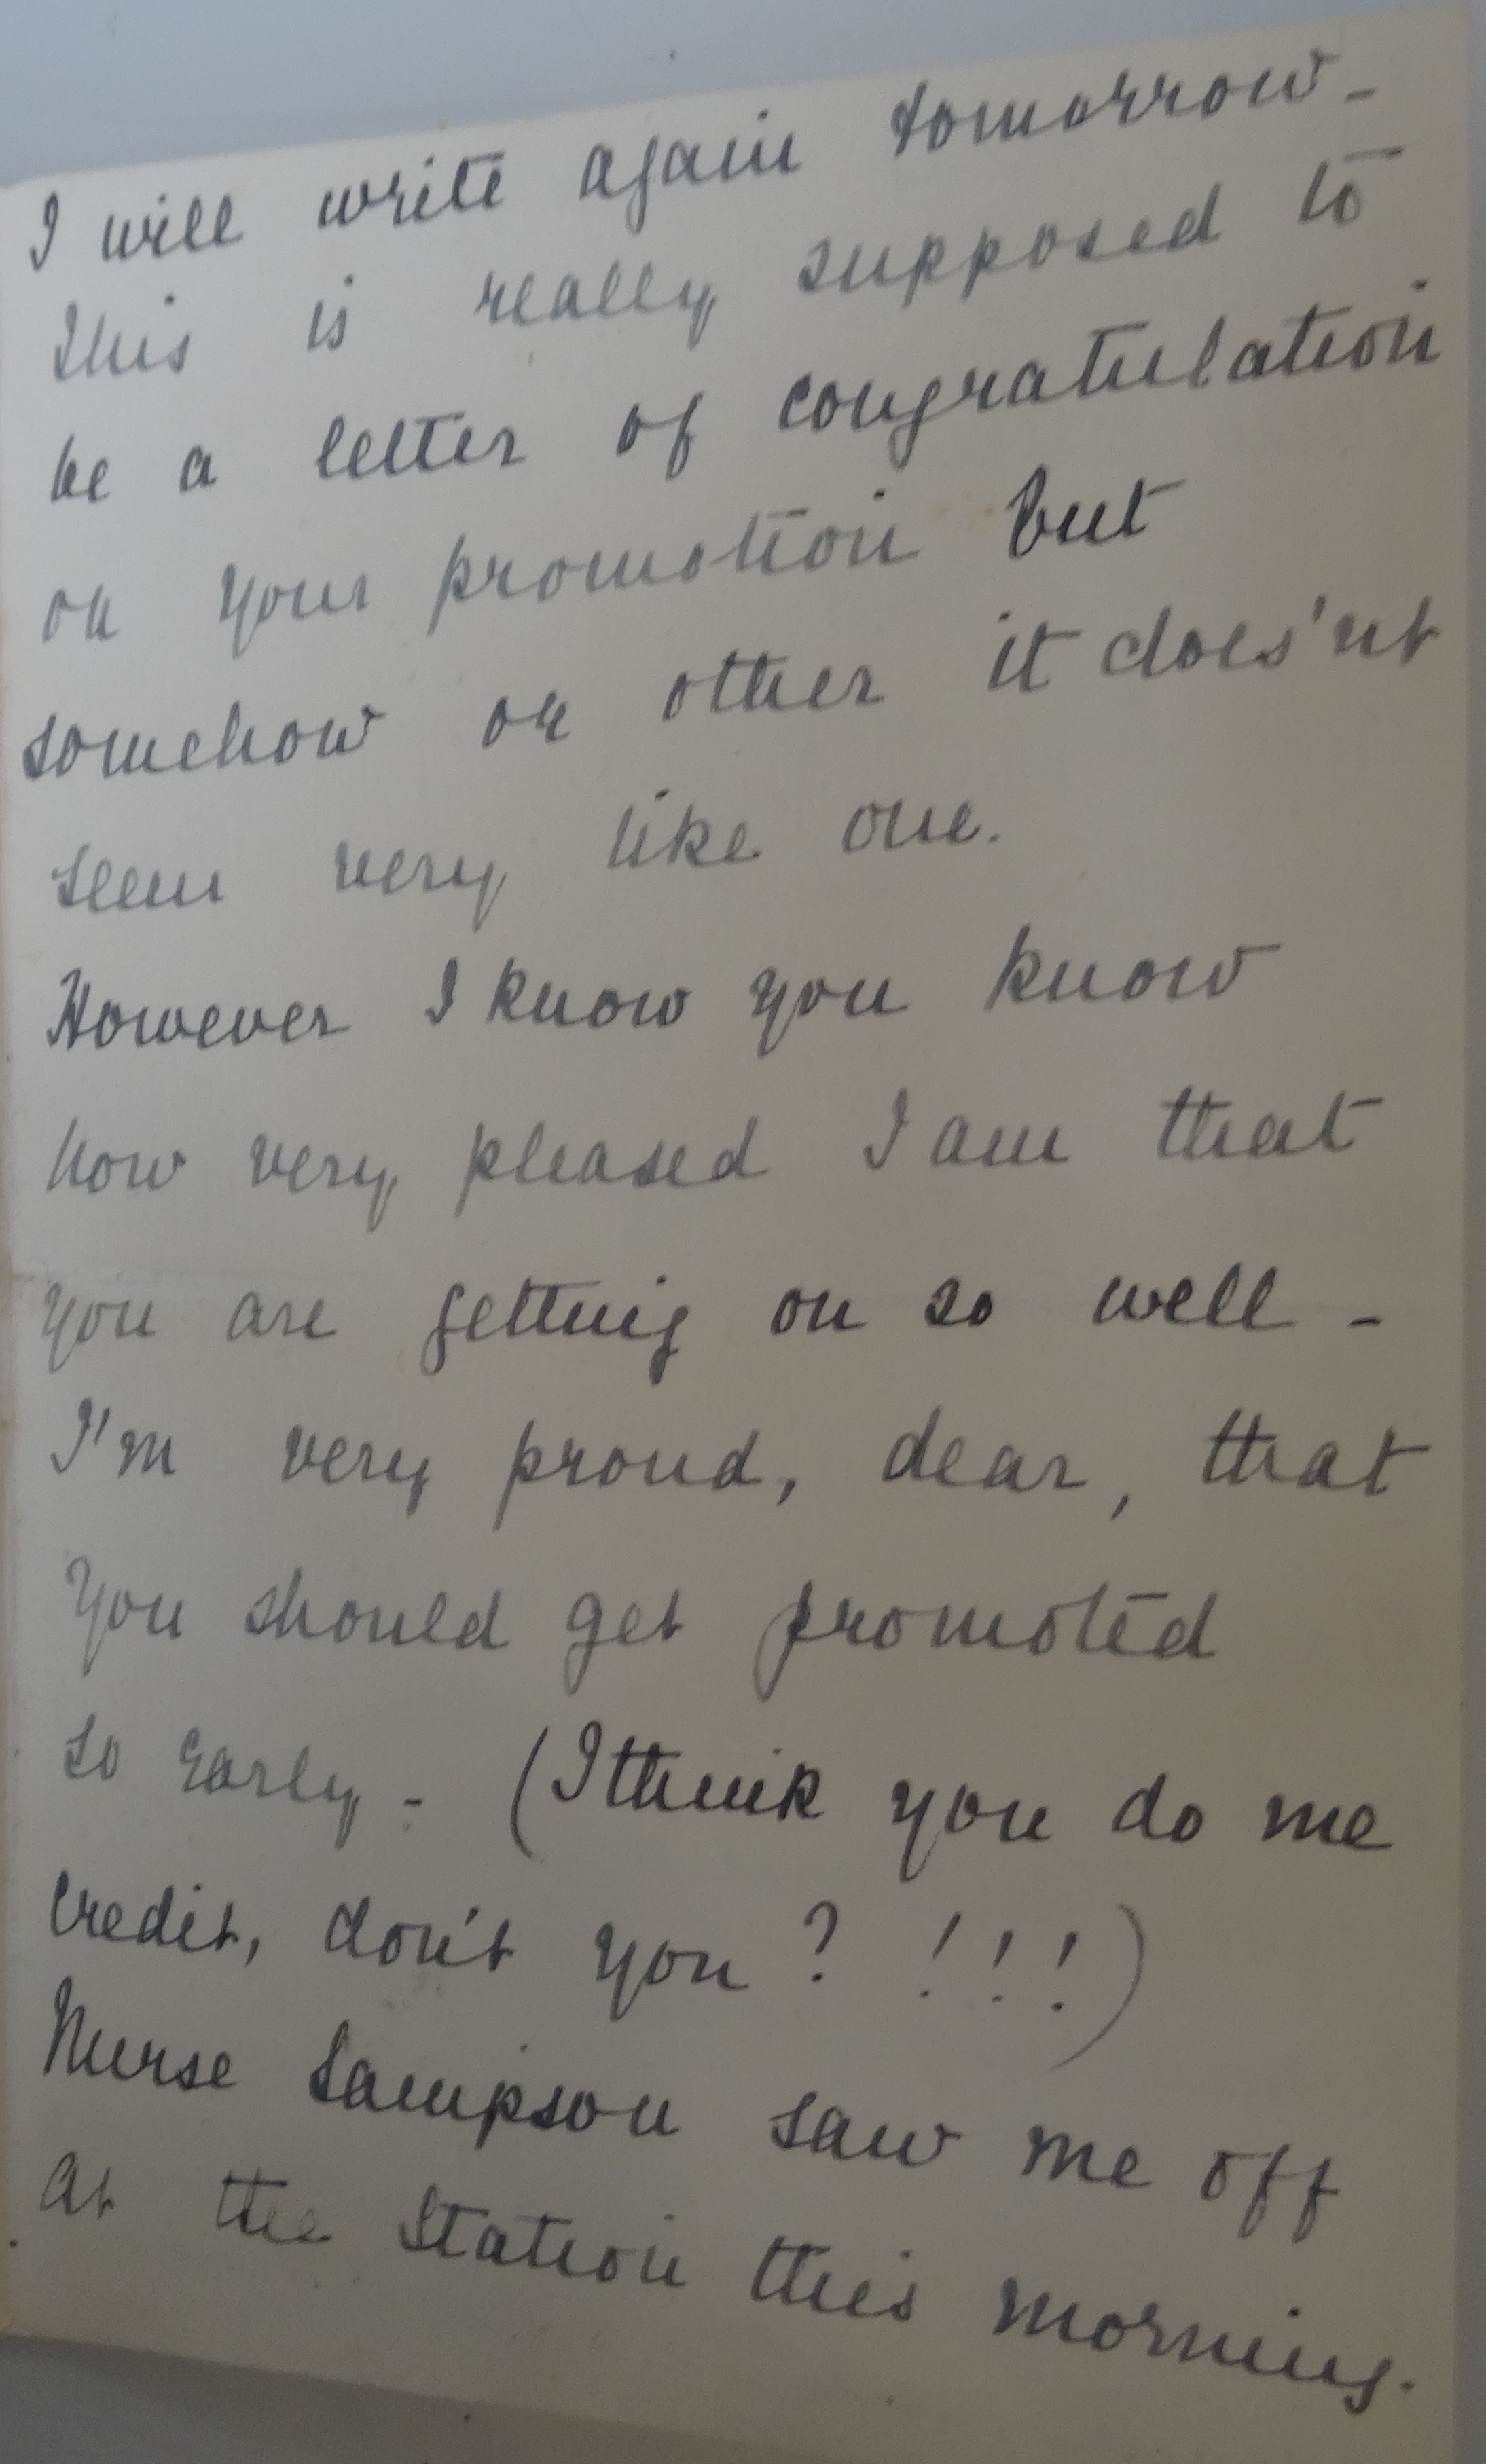 I will write again tomorrow -
this is really supposed to
be a letter of congratulation
on your promotion but
somehow or other it does'nt
seem very like one.
However I know you know
how very pleased I am that
you are getting on so well -
I'm very proud, dear, that
you should get promoted
so early - (I think you do me
credit, don't you? !!!)
Nurse Sampson saw me off
at the Station this morning.